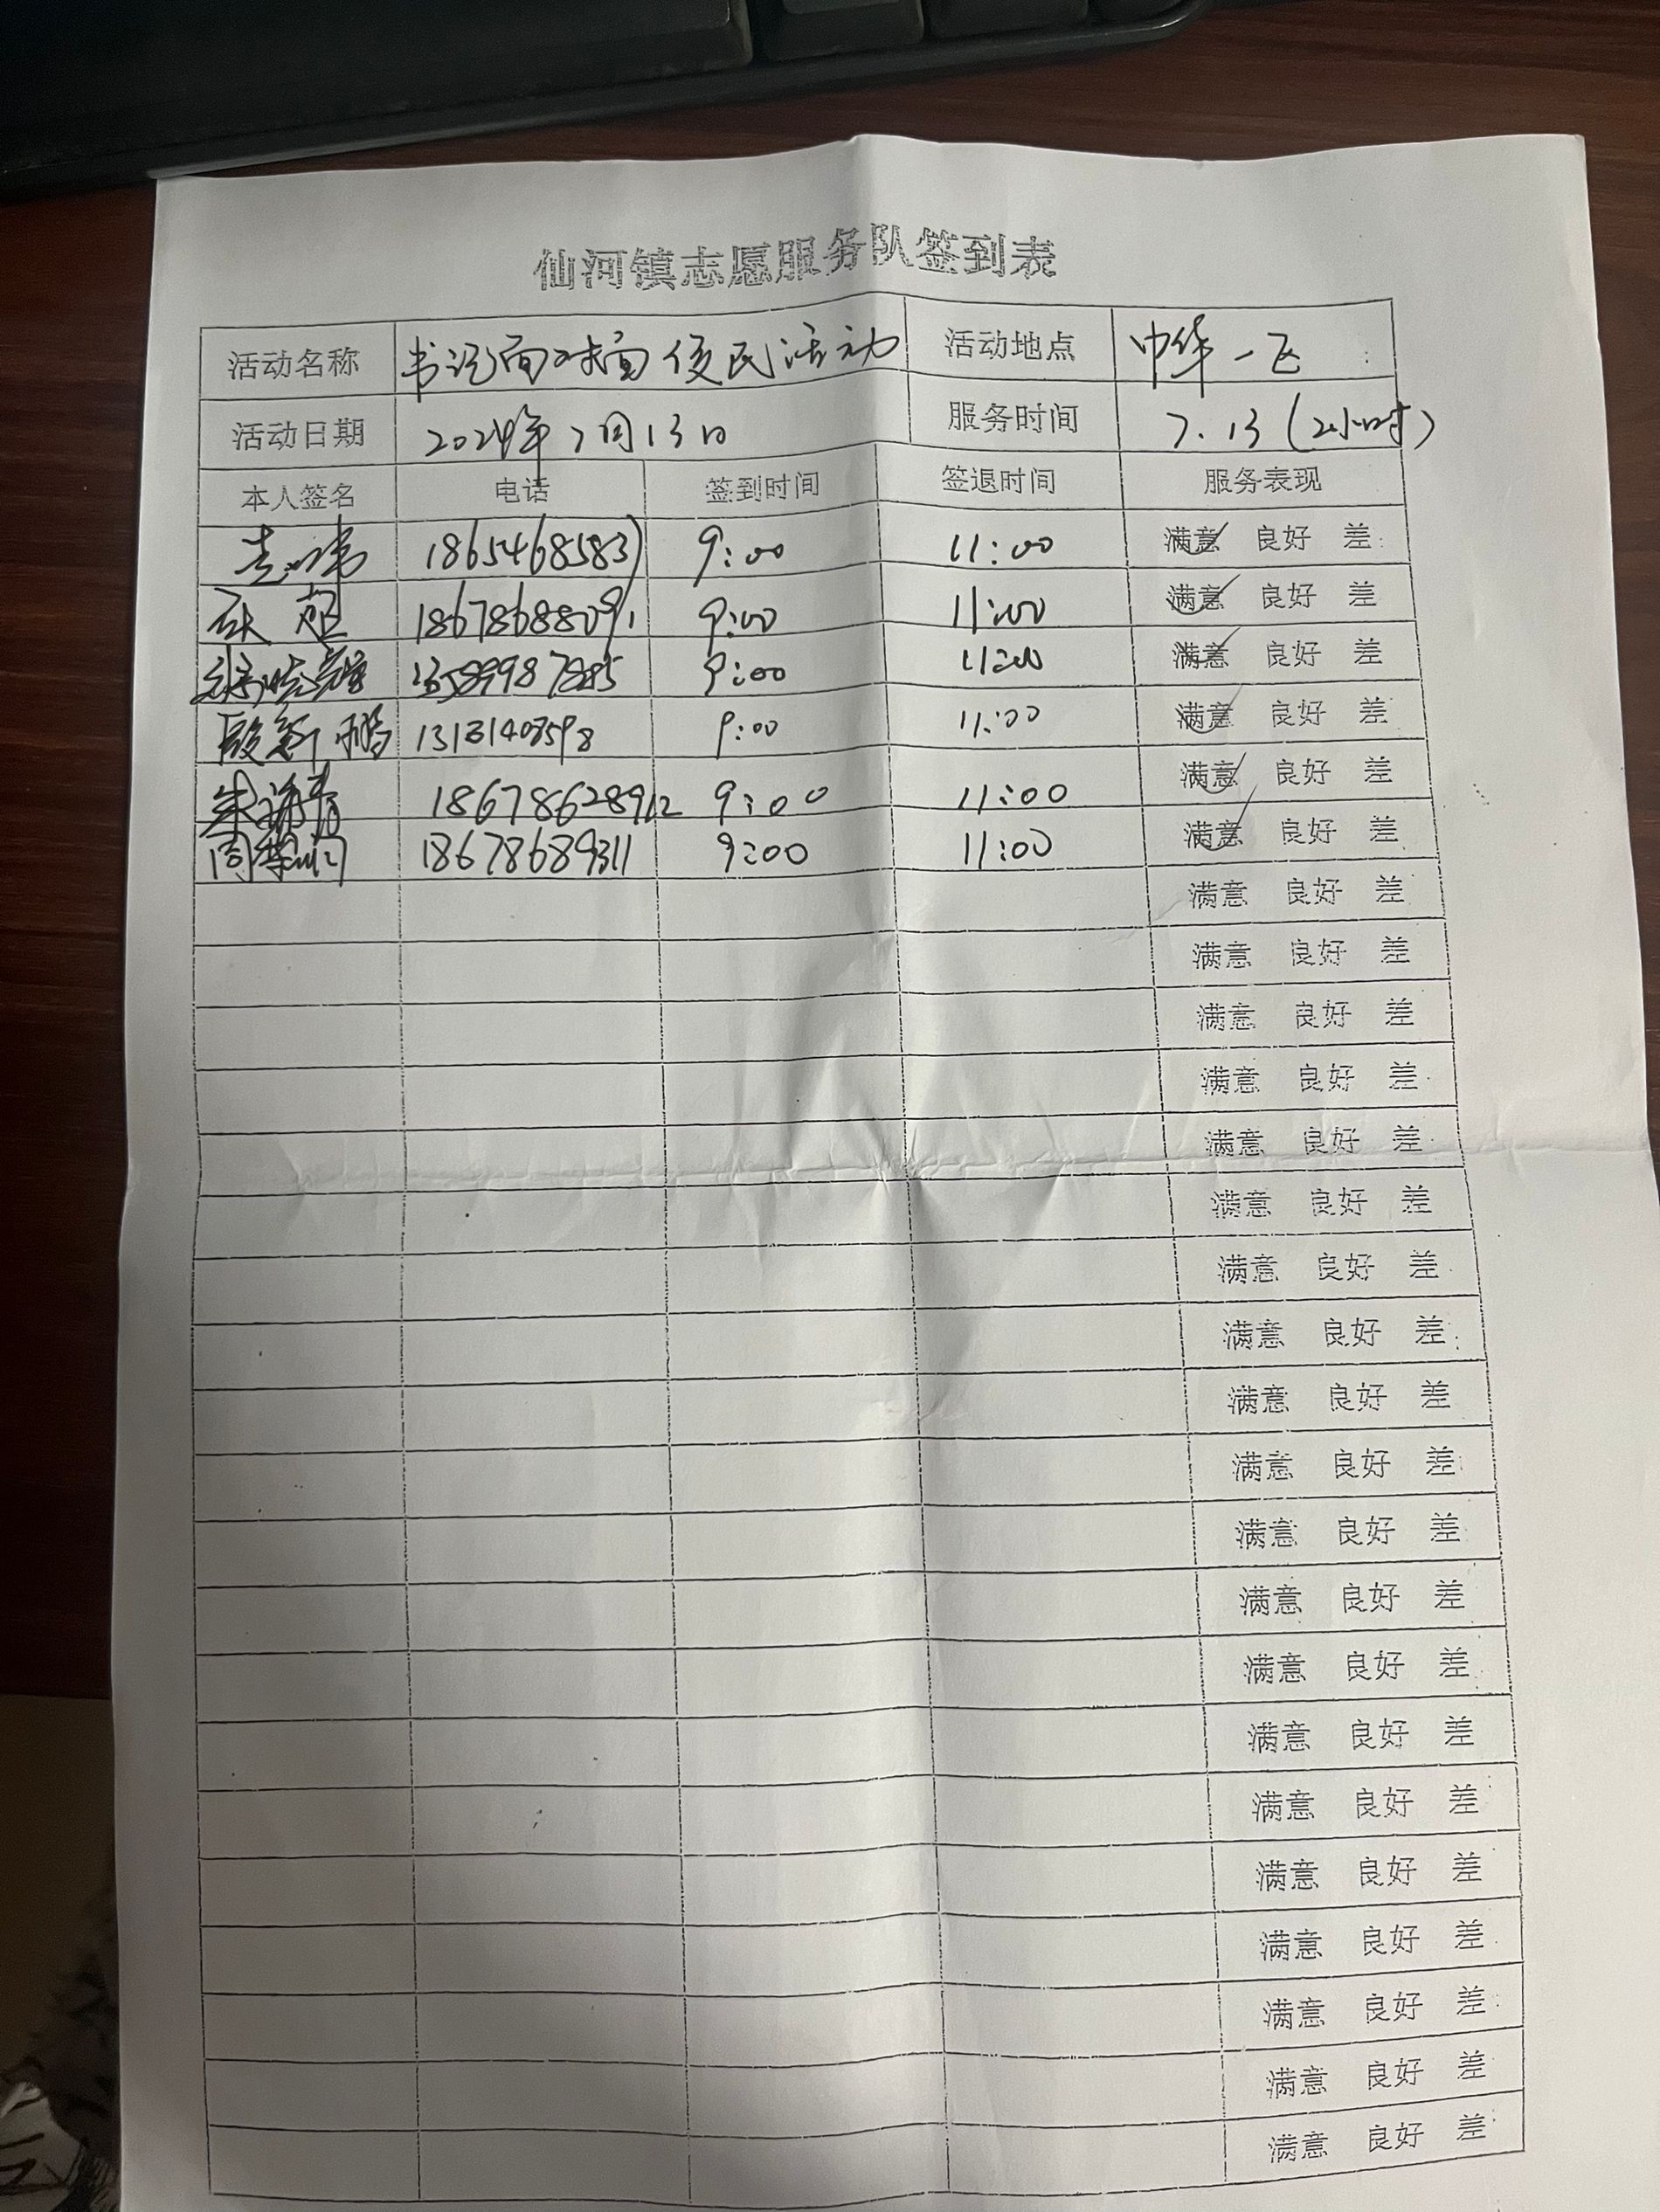 仙河镇志愿服务队签到表
活动名称 书记面对面便民活动 活动地点 中华一区
活动日期 2024年7月13日 服务时间 7.13(2小时)
本人签名 电话 签到时间 签退时间 服务表现
18654685837 9:00 11:00 满意 良好 差
18678688091 9:00 11:00 满意 良好 差
9:00 11:00 满意 良好 差
殷新鹏 9:00 11:00 满意 良好 差
9:00 11:00 满意 良好 差
18678689311 9:00 11:00 满意 良好 差
满意 良好 差
满意 良好 差
满意 良好 差
满意 良好 差
满意 良好 差
满意 良好 差
满意 良好 差
满意 良好 差
满意 良好 差
满意 良好 差
满意 良好 差
满意 良好 差
满意 良好 差
满意 良好 差
满意 良好 差
满意 良好 差
满意 良好 差
满意 良好 差
满意 良好 差
满意 良好 差